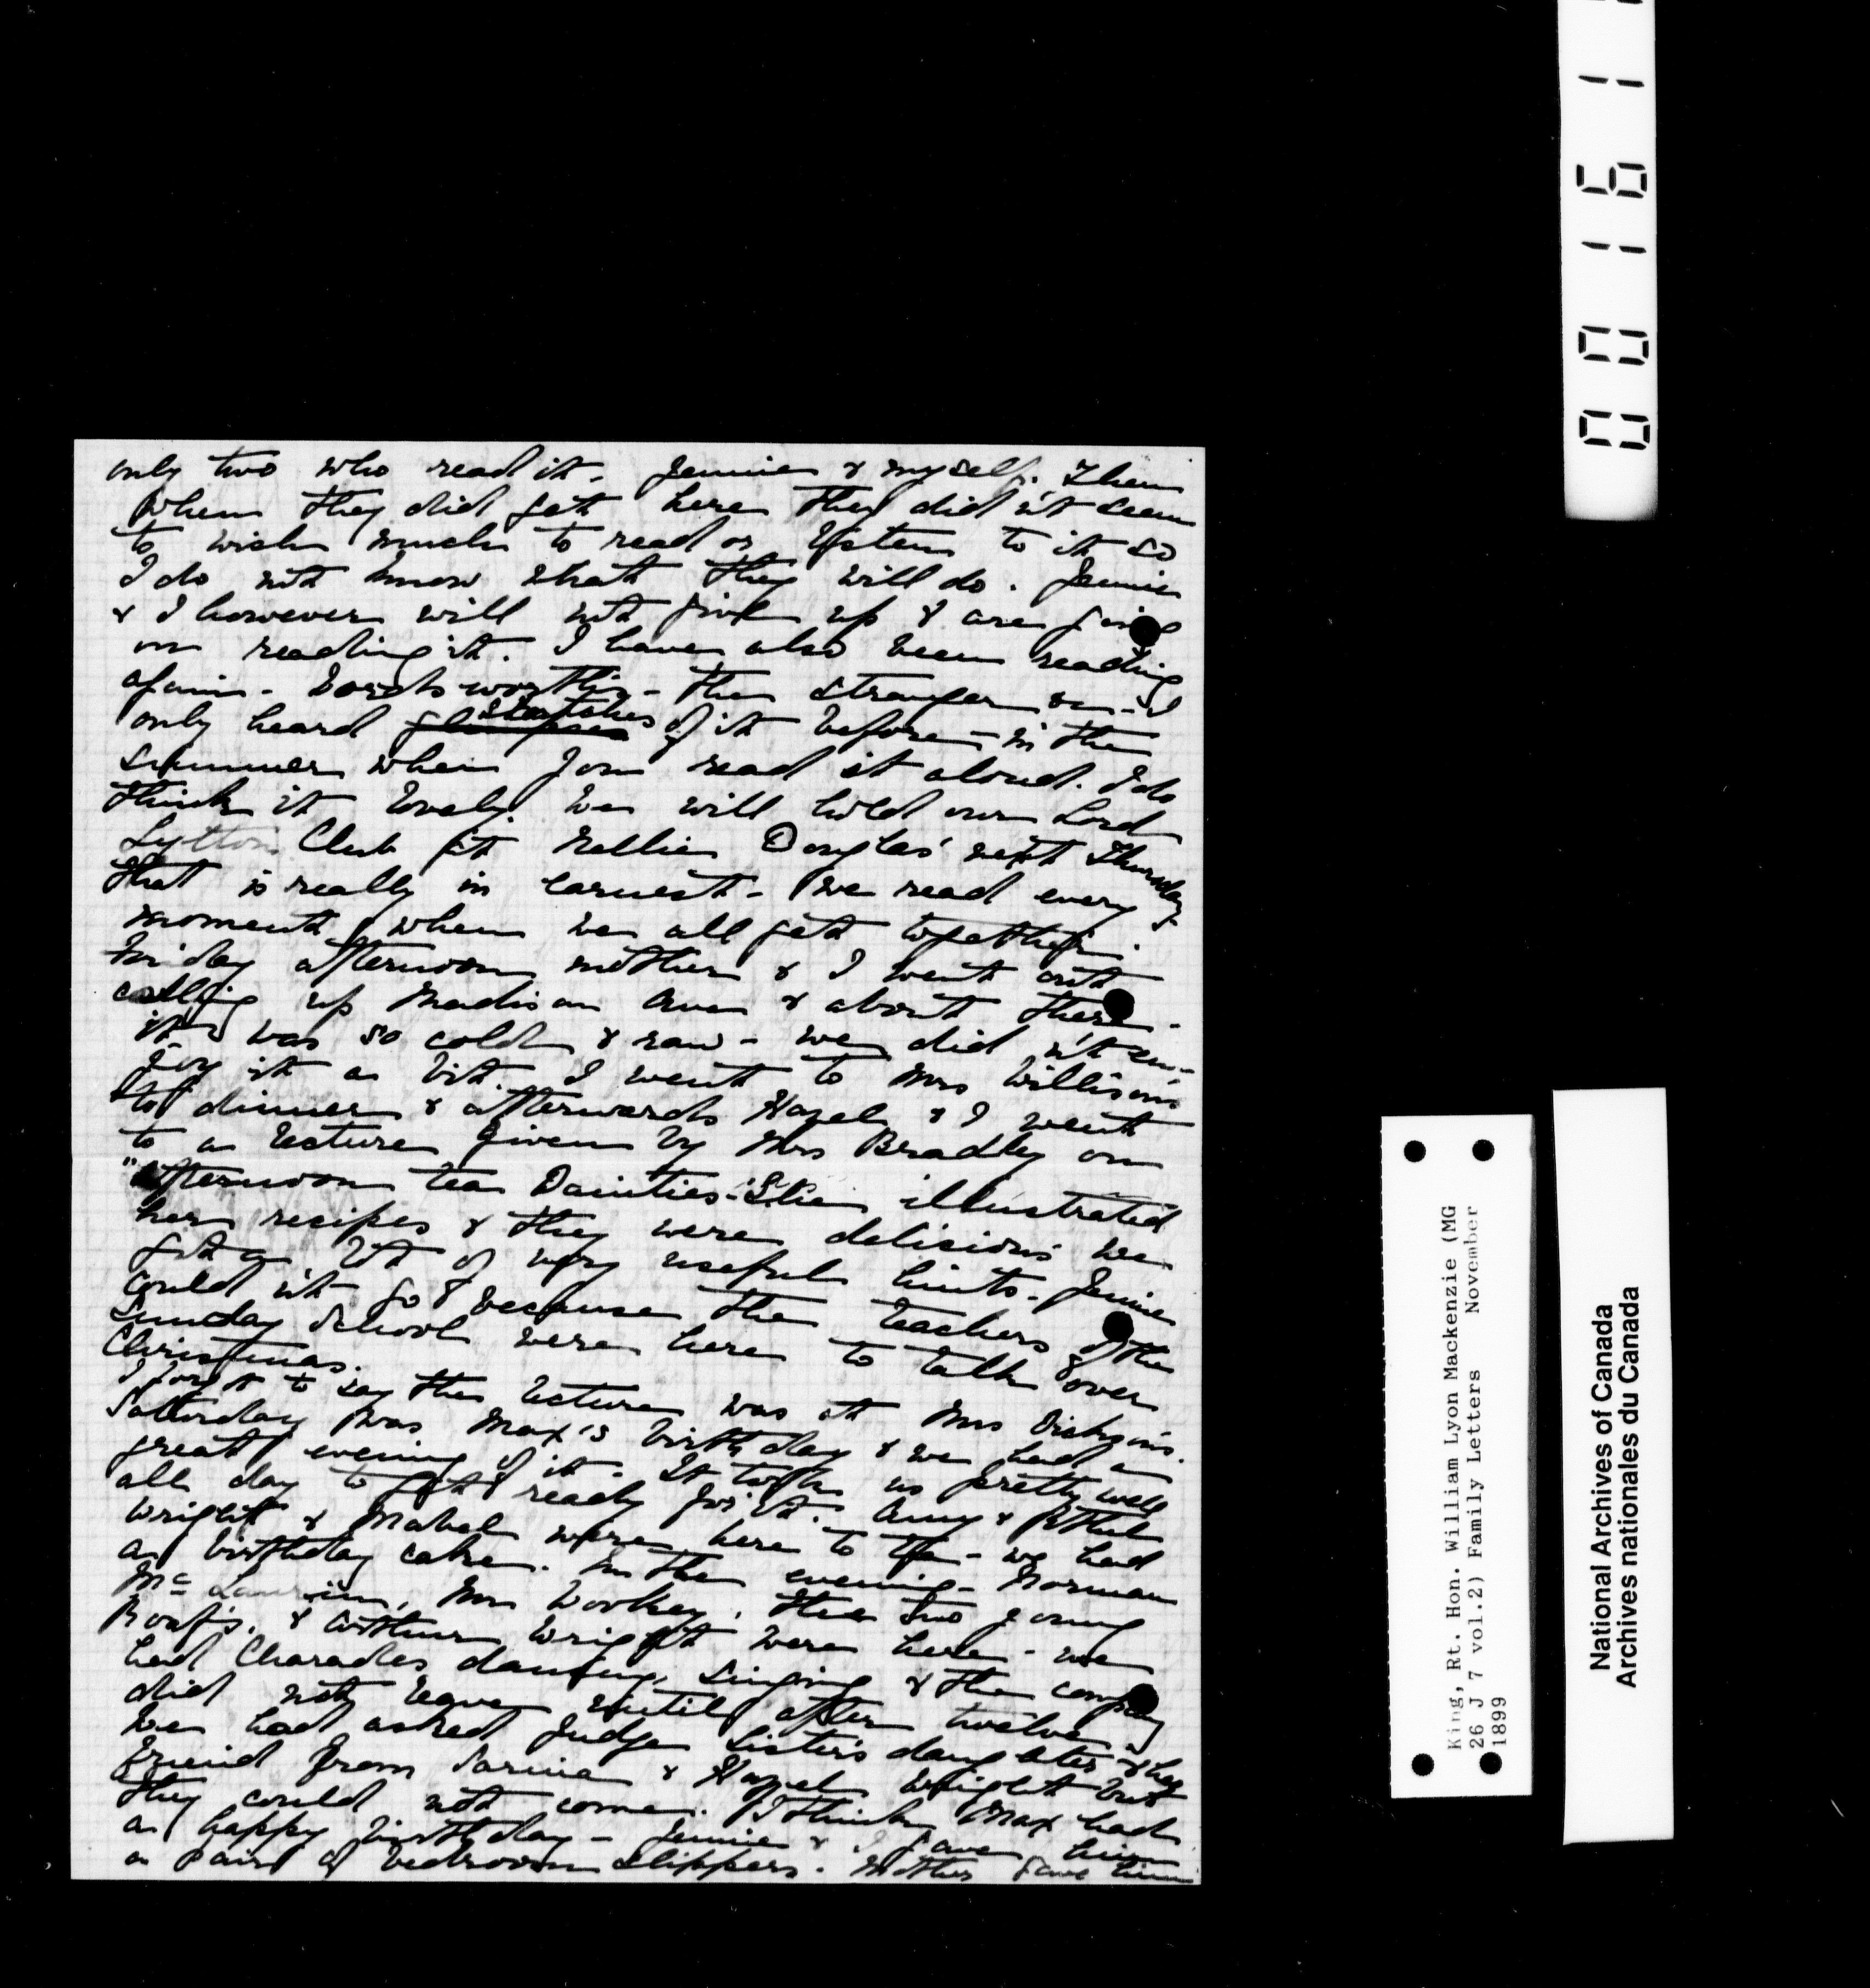 only two who read it - Jennie & myself. Then
when they did get here they did n't seem
to wish much to read or listen to it so
I do not know what they will do. Jennie
& I however will not give up & are going
on reading it. I have also been reading
again - - the Stranger - I
only heard snatches of it before - in the
summer when you read it aloud. I do
think it lovely. We will hold our Lord
Lytton Club at Nellie Douglas' next Thursday
that is really in earnest - we read every
moment when we all get together.
Friday afternoon mother & I went out
calling up Madison Ave & about there -
it was so cold & raw - we did n't en-
joy it a bit. I went to Mrs Willison's
to dinner & afterwards Hazel & I went
to a lecture given by Mrs Bradley on
"Afternoon tea Dainties." She illustrated
her recipes & they were delicious we
got a lot of very useful hints - Jennie
could n't go because the teachers of the
Sunday School were here to talk over
Christmas.
I forgot to say the lecture was at Mrs
Saturday was Max's birthday & we had a
great evening of it - It took us pretty well
all day to get ready for it. Amy & Ethel
Wright & Mabel were here to tea - we had
a birthday cake. In the evening - Norman
McLaurin, Mr , the two young
Roaf's, & Arthur Wright were here - we
had Charades dancing, singing & the company
did not leave until after twelve
We had asked Judge Lister's daughter & her
friend from Sarnia & Hazel Wright but
they could not come. I think Max had
a happy birthday - Jennie & I gave him
a pair of bedroom slippers. Mother gave him
00161
King, Rt. Hon. William Lyon Mackenzie (MG
26 J 7 vol.2) Family Letters November
1899
National Archives of Canada
Archives nationales du Canada